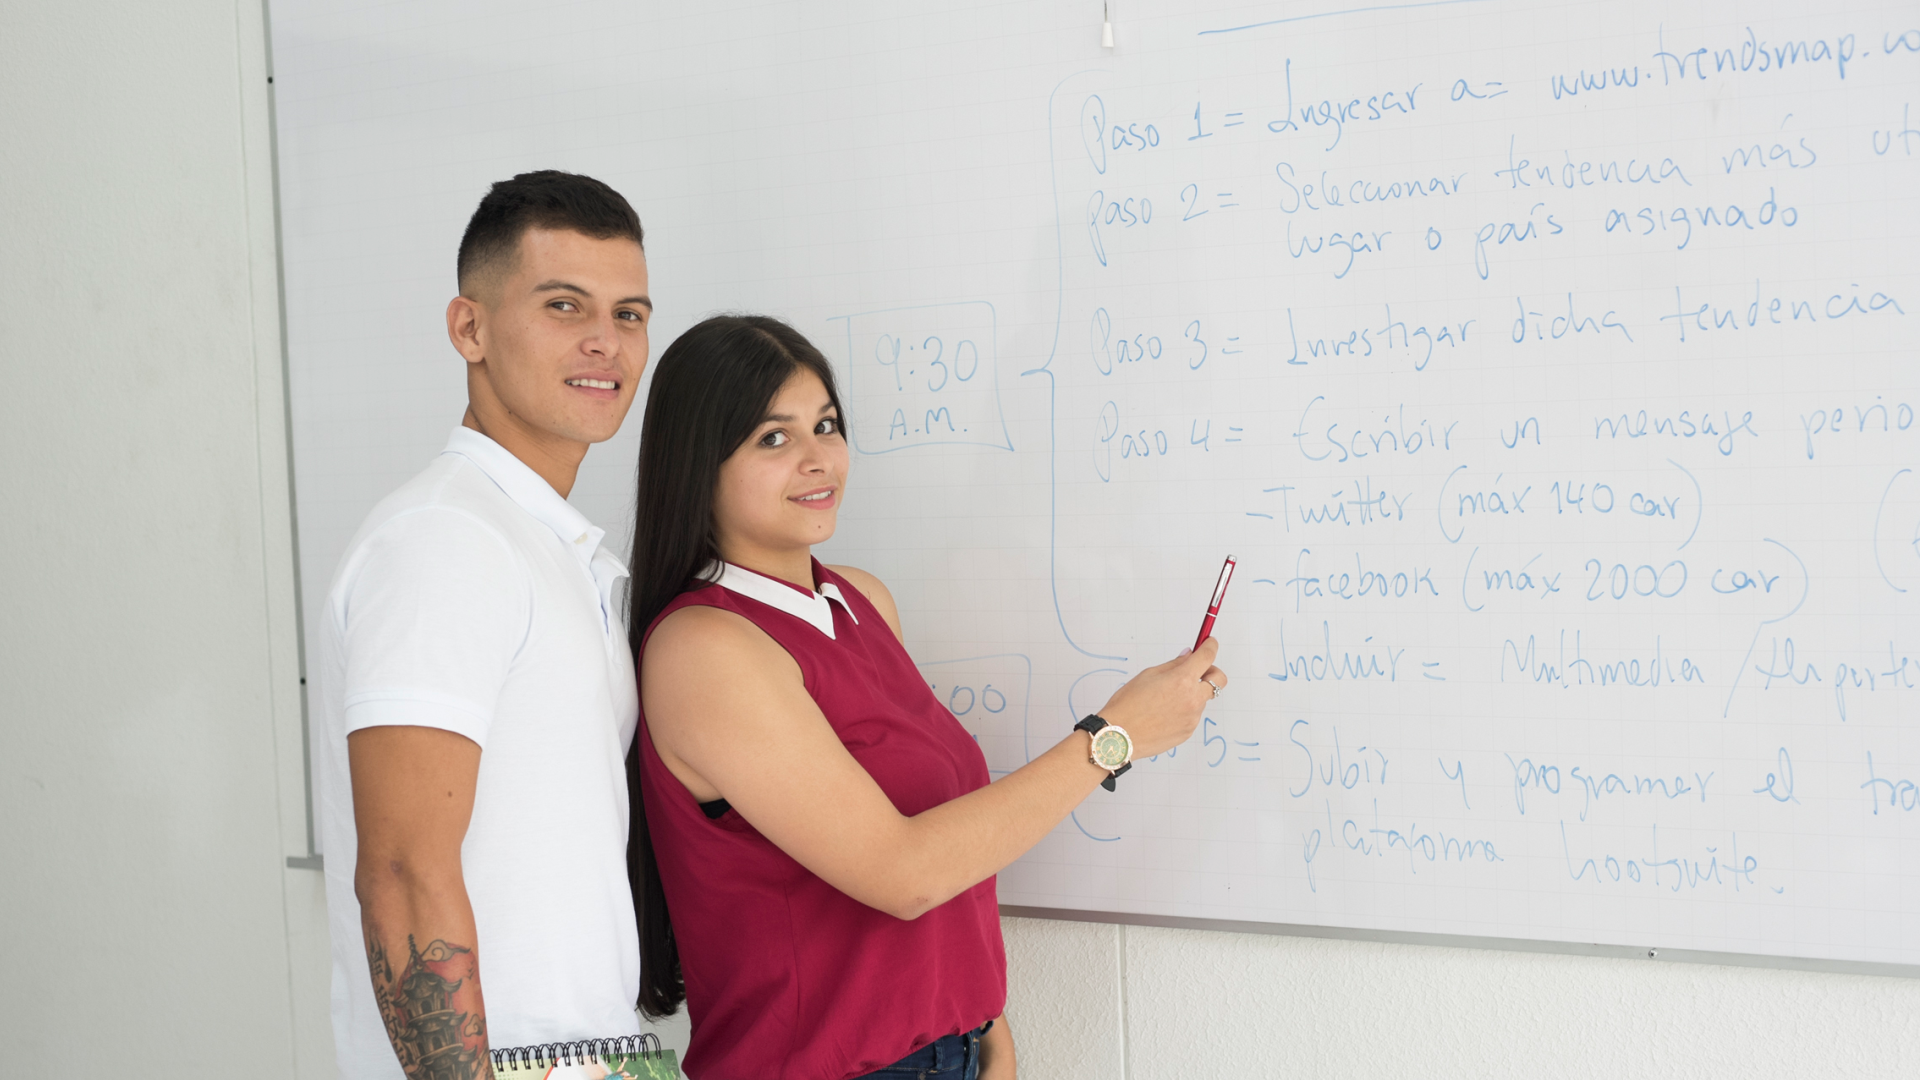 Paso 1 = Ingresar a= www.trendsmap.co
Paso 2 = Seleccionar tendencia más ut
lugar o país asignado
9:30
A.M.
Paso 3 = Investigar dicha tendencia
Paso 4 = Escribir un mensaje perio
- Twitter (máx 140 car)
- facebook (máx 2000 car)
Incluir = Multimedia /
:00
5 = Subir y programer el tra
plataforma hootsuite.